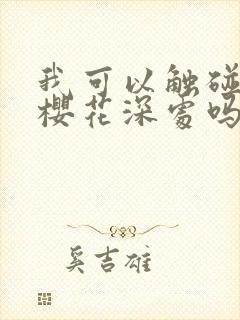 我可以触碰
樱花深处吗
奚吉雄